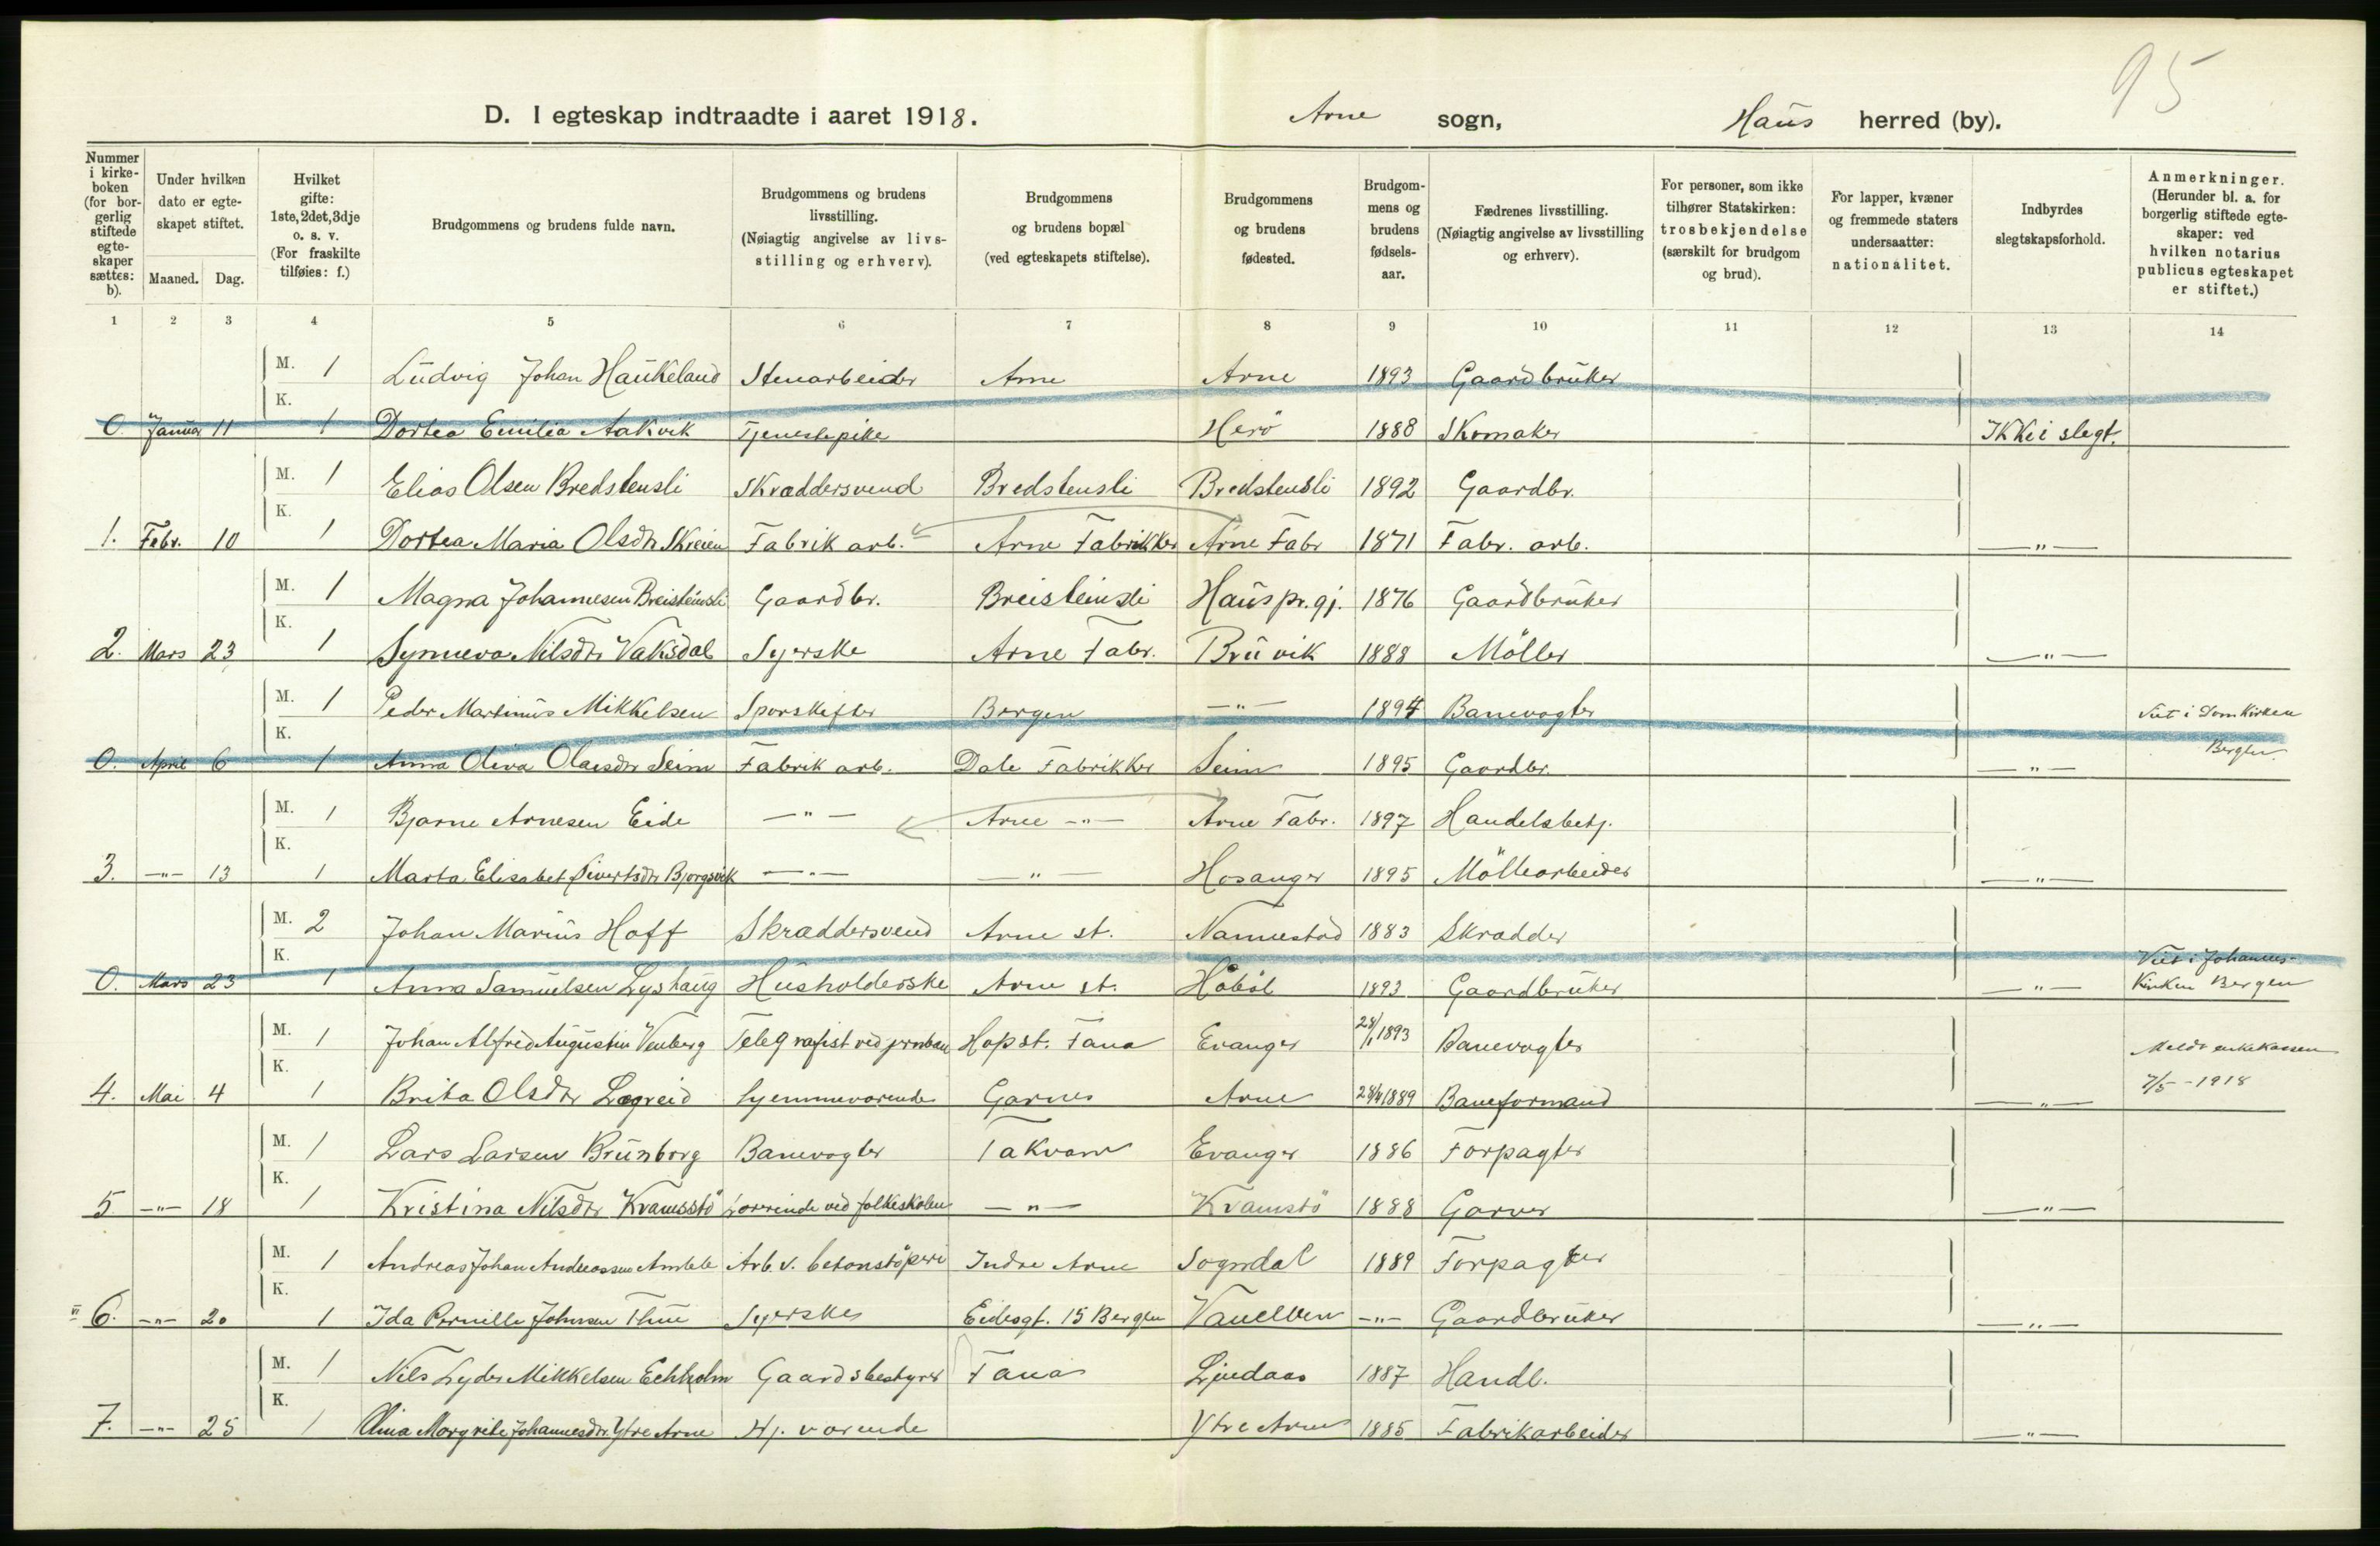 95
D. I egteskap indtraadte i aaret 1918. Arne sogn, Haus herred (by).
Nummer i kirkeboken (for borgerlig stiftede egteskaper sættes: b).
Under hvilken dato er egteskapet stiftet.
Maaned. Dag.
Hvilket gifte: 1ste, 2det, 3dje o. s. v. (For fraskilte tilføies: f.)
Brudgommens og brudens fulde navn.
Brudgommens og brudens livsstilling. (Nøiagtig angivelse av livsstilling og erhverv).
Brudgommens og brudens bopæl (ved egteskapets stiftelse).
Brudgommens og brudens fødested.
Brudgommens og brudens fødselsaar.
Fædrenes livsstilling. (Nøiagtig angivelse av livsstilling og erhverv).
For personer, som ikke tilhører Statskirken: trosbekjendelse (særskilt for brudgom og brud).
For lapper, kvæner og fremmede staters undersaatter: nationalitet.
Indbyrdes slegtskapsforhold.
Anmerkninger. (Herunder bl. a. for borgerlig stiftede egteskaper: ved hvilken notarius publicus egteskapet er stiftet.)
1 2 3 4 5 6 7 8 9 10 11 12 13 14
M. 1 Ludvig Johan Haukeland Stenarbeider Arne Arne 1893 Gaardbruker
K.
0. Januar 11 1 Dortea Emilia Aakvik Tjenestepike Herö 1888 Skomaker Ikke i slegt.
M. 1 Elias Olsen Bredstensli Skræddersvend Bredstensli Bredstensli 1892 Gaardbr.
K.
1. Febr. 10 1 Dortea Maria Olsdtr Skreien Fabrik arb. Arne Fabrikker Arne Fabr 1871 Fabr. arb. —"—
M. 1 Magna Johannesen Breisteinsli Gaardbr. Breisteinsli Haus pr.gj. 1876 Gaardbruker
K.
2. Mars 23 1 Synneva Nilsdtr Vaksdal Syerske Arne Fabr. Bruvik 1888 Möller —"—
M. 1 Peder Martinus Mikkelsen Sporskifter Bergen —"— 1894 Banevogter Viet i Domkirken
K.
Bergen.
0. April 6 1 Anna Oliva Olaisdtr Seim Fabrik arb. Dale Fabrikker Seim 1895 Gaardbr. —"—
M. 1 Bjarne Arnesen Eide —"— Arne —"— Arne Fabr. 1897 Handelsbetj.
K.
3. —"— 13 1 Marta Elisabet Sivertsdtr Bjorgsvik —"— —"— Hosanger 1895 Möllearbeider —"—
M. 2 Johan Marius Hoff Skræddersvend Arne st. Namnestad 1883 Skrædder
K.
Viet i Johannes-
0. Mars 23 1 Anna Samuelsen Lyshaug Husholderske Arne st. Håböl 1893 Gaardbruker —"— kirken Bergen
M. 1 Johan Alfred Augustin Venberg Telegrafist ved jernban Hop st. Fana Evanger 28/1 1893 Banevogter Meldt enkekassen
K.
7/5 - 1918
4. Mai 4 1 Brita Olsdtr Lægreid hjemmeværende Garnes Arne 28/4 1889 Baneformand —"—
M. 1 Lars Larsen Brunborg Banevogter Takvam Evanger 1886 Forpagter
K.
5. —"— 18 1 Kristina Nilsdtr Kvamsstö Lærerinde ved folkeskolen —"— Kvamstö 1888 Garver —"—
M. 1 Andreas Johan Andreassen Amble Arb. v. betonstöperi Indre Arne Sogndal 1889 Forpagter
K.
6. —"— 20 1 Ida Pernille Johnsen Thue Syerske Eidesgt. 15 Bergen Vanelven —"— Gaardbruker —"—
M. 1 Nils Lyder Mikkelsen Echholm Gaardsbestyrer Fana Lindaas 1887 Handl.
K.
7. —"— 25 1 Olina Margrete Johannesdtr. Ytre Arne Hj. værende Ytre Arne 1885 Fabrikarbeider —"—